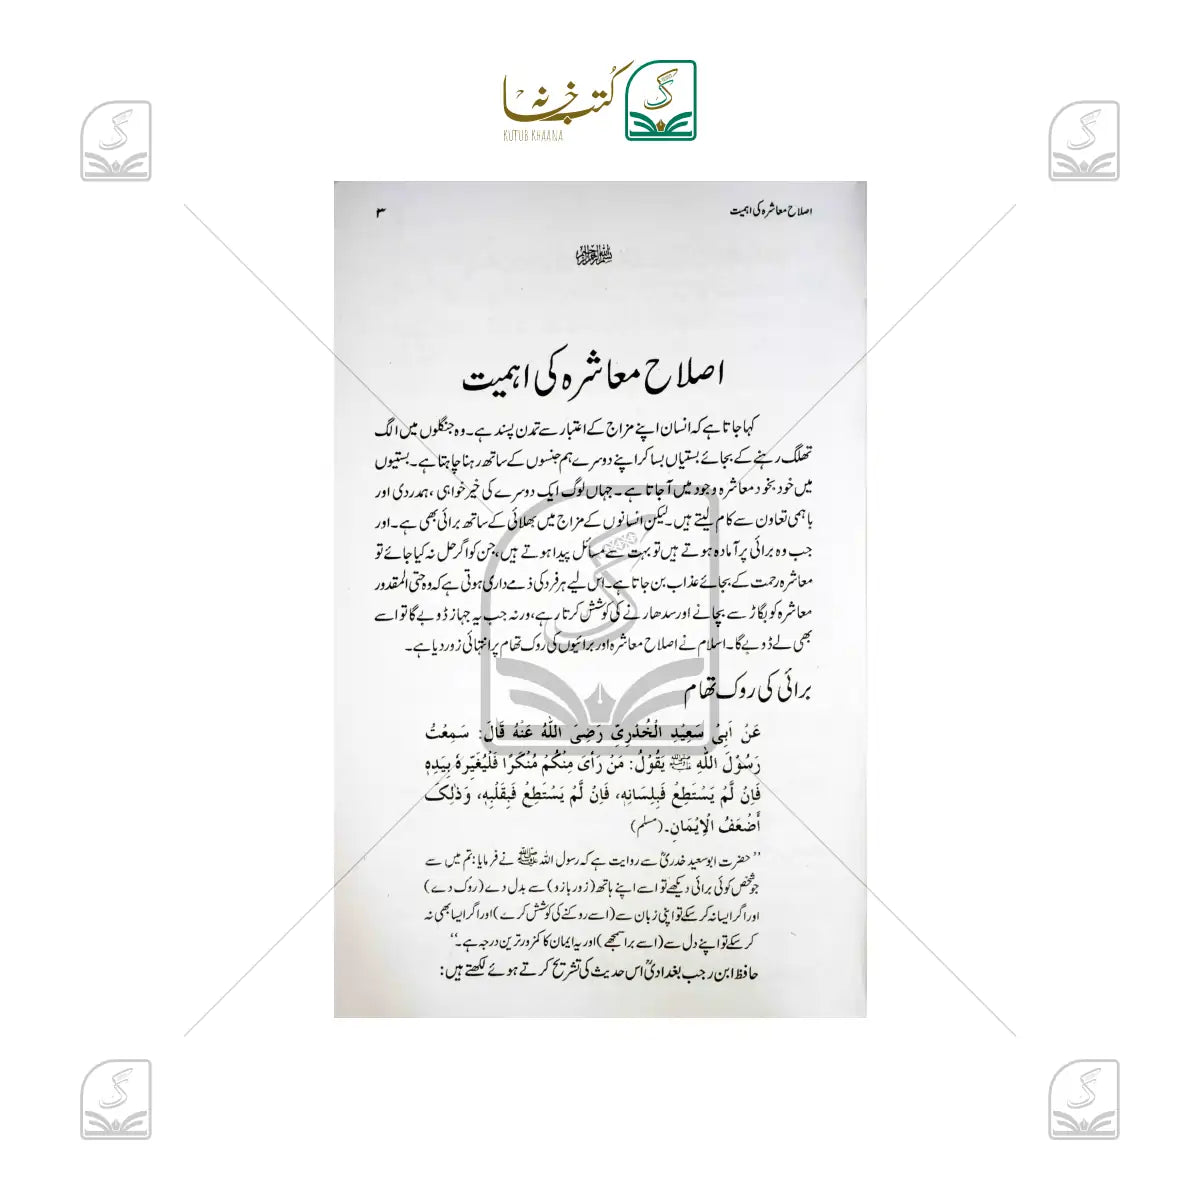 کتب خانہ
KUTUB KHAANA
اصلاح معاشرہ کی اہمیت ۳
اصلاح معاشرہ کی اہمیت
کہا جاتا ہے کہ انسان اپنے مزاج کے اعتبار سے تمدن پسند ہے۔ وہ جنگلوں میں الگ
تھلگ رہنے کے بجائے بستیاں بسا کر اپنے دوسرے ہم جنسوں کے ساتھ رہنا چاہتا ہے۔ بستیوں
میں خود بخود معاشرہ وجود میں آ جاتا ہے۔ جہاں لوگ ایک دوسرے کی خیر خواہی، ہمدردی اور
باہمی تعاون سے کام لیتے ہیں۔ لیکن انسانوں کے مزاج میں بھلائی کے ساتھ برائی بھی ہے۔ اور
جب وہ برائی پر آمادہ ہوتے ہیں تو بہت سے مسائل پیدا ہوتے ہیں، جن کو اگر حل نہ کیا جائے تو
معاشرہ رحمت کے بجائے عذاب بن جاتا ہے۔ اس لیے ہر فرد کی ذمے داری ہوتی ہے کہ وہ حتی المقدور
معاشرہ کو بگاڑ سے بچانے اور سدھارنے کی کوشش کرتا رہے، ورنہ جب یہ جہاز ڈوبے گا تو اسے
بھی لے ڈوبے گا۔ اسلام نے اصلاح معاشرہ اور برائیوں کی روک تھام پر انتہائی زور دیا ہے۔
برائی کی روک تھام
عَنْ اَبِیْ سَعِیْدِ الْخُدْرِیِّ رَضِیَ اللّٰهُ عَنْهُ قَالَ: سَمِعْتُ
رَسُوْلَ اللّٰهِ ﷺ یَقُوْلُ: مَنْ رَأىٰ مِنْکُمْ مُنْکَرًا فَلْیُغَیِّرْهُ بِیَدِهٖ
فَاِنْ لَّمْ یَسْتَطِعْ فَبِلِسَانِهٖ، فَاِنْ لَّمْ یَسْتَطِعْ فَبِقَلْبِهٖ، وَذٰلِکَ
أَضْعَفُ الْاِیْمَانِ۔ (مسلم)
’’حضرت ابوسعید خدریؓ سے روایت ہے کہ رسول اللہ ﷺ نے فرمایا: تم میں سے
جو شخص کوئی برائی دیکھے تو اسے اپنے ہاتھ (زور بازو) سے بدل دے (روک دے)
اور اگر ایسا نہ کر سکے تو اپنی زبان سے (اسے روکنے کی کوشش کرے) اور اگر ایسا بھی نہ
کر سکے تو اپنے دل سے (اسے برا سمجھے) اور یہ ایمان کا کمزور ترین درجہ ہے۔‘‘
حافظ ابن رجب بغدادیؒ اس حدیث کی تشریح کرتے ہوئے لکھتے ہیں: